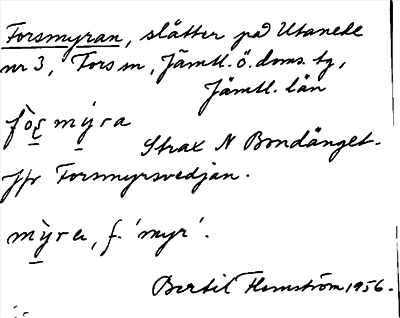 Forsmyran, slåtter på Utanede
nr 3, Fors sn, Jämtl. ö. doms. tg,
Jämtl. län
fòs̠ my̠ra
Strax N Bondänget.
Jfr Forsmyrsvedjan.
mỳ̠ra, f. 'myr'.
Bertil Flemström, 1956.